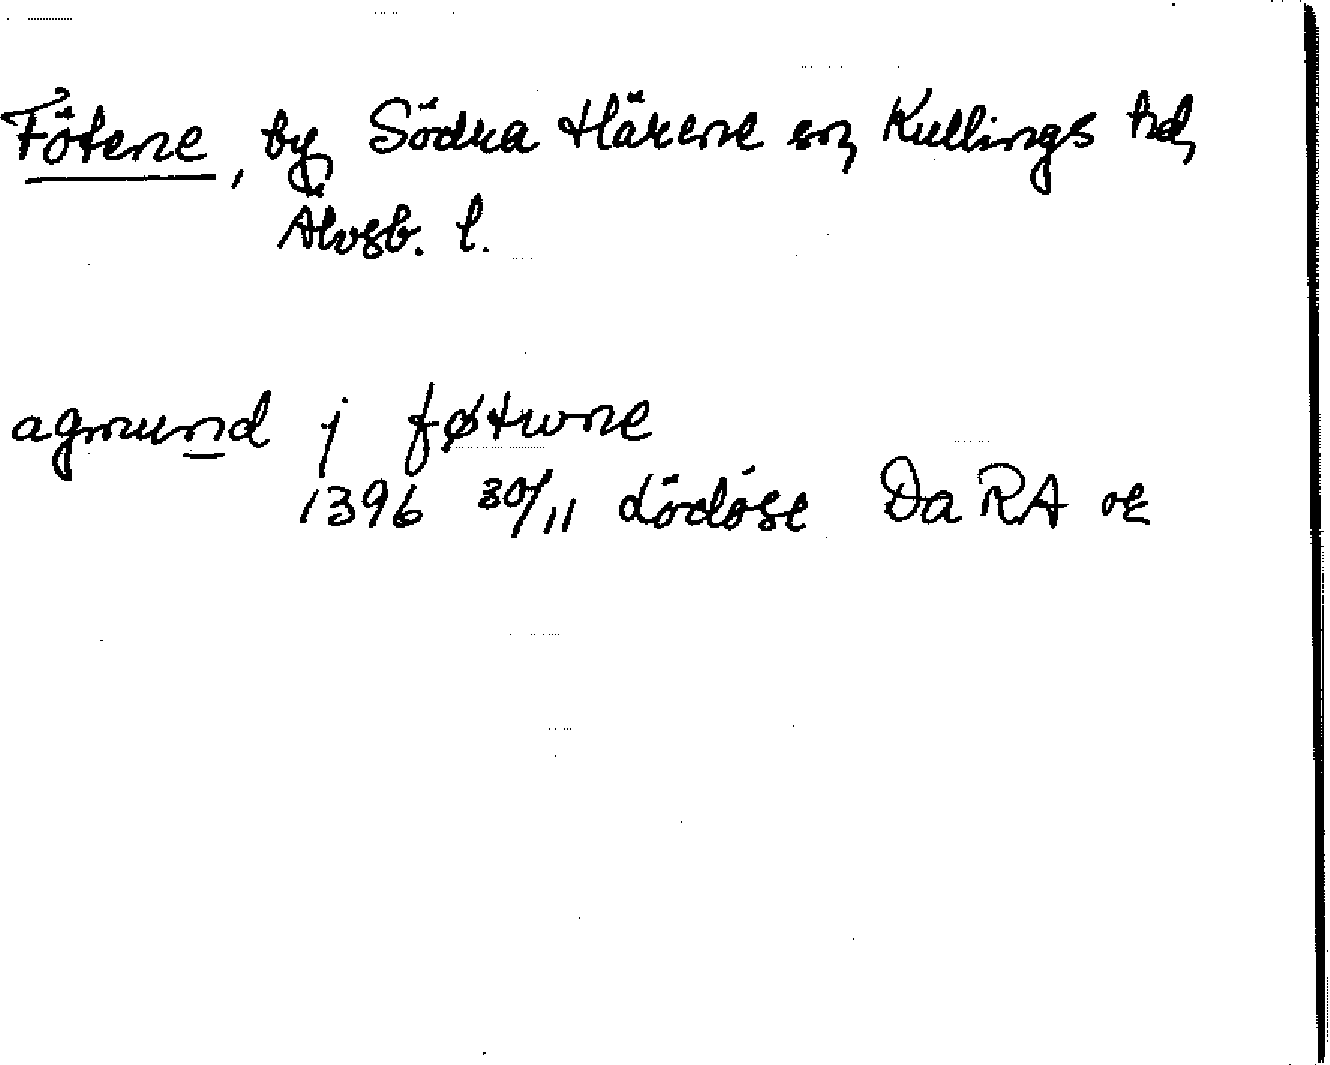 Fötene, by, Södra Härene sn, Kullings hd,
Älvsb. l.
agmund j føtwne
1396 30/11 Lödöse Da RA or